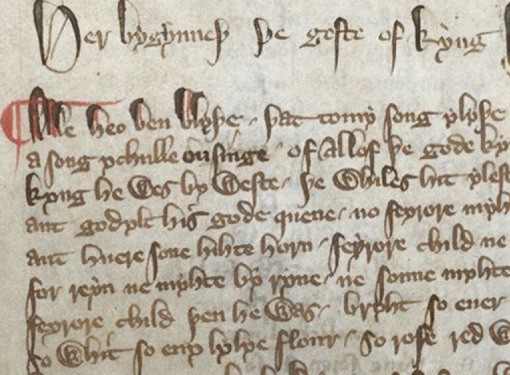 Her bygynneþ þe geste of kyng
Alle heo ben blyþe þat to my song ylyþe
a song ychulle ou singe of Allof þe gode ky
kyng he wes by weste þe whiles hit yles
ant godylt his gode quene no feyrore myh
ant huere sone hihte horn feyrore child ne
for reyn ne myhte by ryne ne sonne myhte
feyrore child þen he was bryht so euer
so whit so eny lylye flour so rose red w